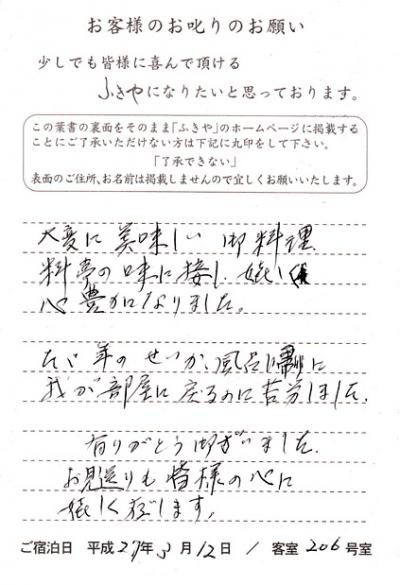 お客様のお叱りのお願い
少しでも皆様に喜んで頂ける
ふきやになりたいと思っております。
この葉書の裏面をそのまま「ふきや」のホームページに掲載する
ことにご了承いただけない方は下記に丸印をして下さい。
「了承できない」
表面のご住所、お名前は掲載しませんので宜しくお願いいたします。
大変に美味しい御料理、
料亭の味に接し、嬉しく
心豊かになりました。
ただ年のせいか、風呂に
我が部屋に戻るのに苦労しました。
有りがとう御ざいました。
お見送りも皆様の心に
嬉しく存じます。
ご宿泊日 平成27年3月12日 / 客室206号室